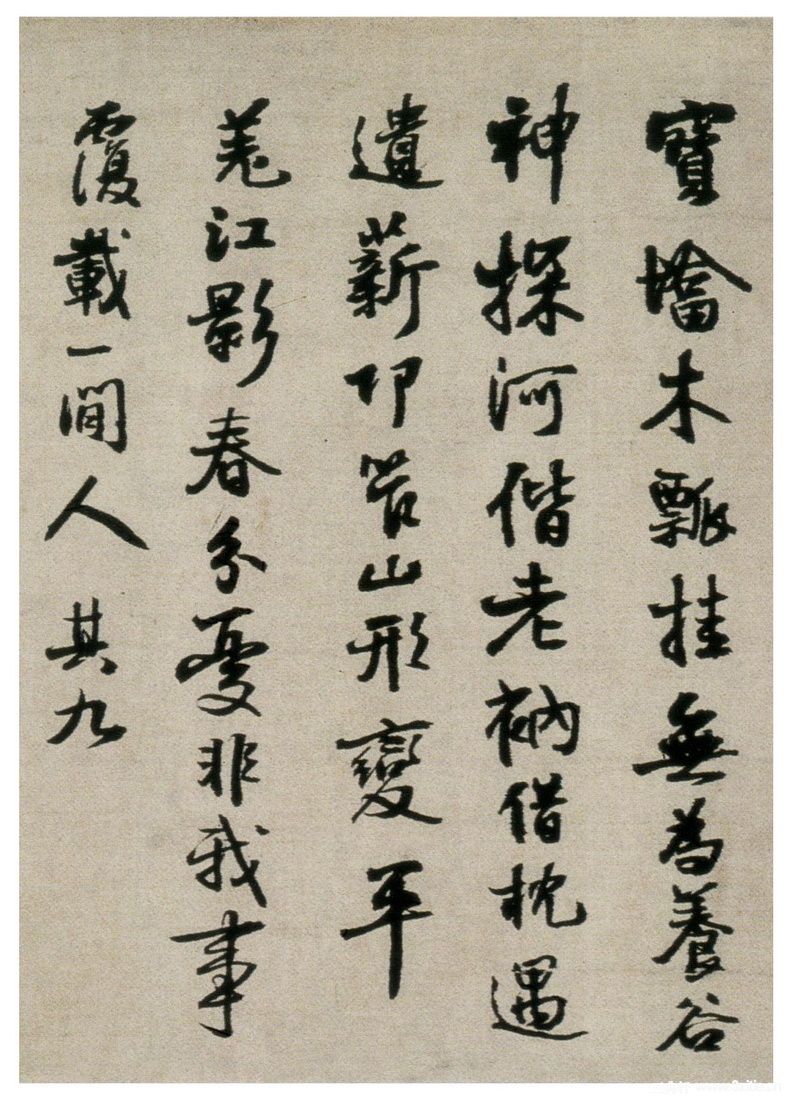 寶墖木瓢挂無為養谷
神探河偕老衲借枕遇
遺薪邛笮山形變平
羌江影春分憂非我事
覆載一閒人 其九